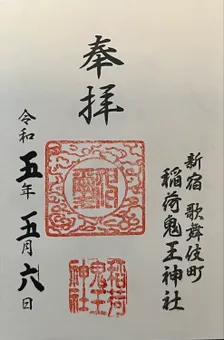 奉拝
新宿 歌舞伎町
稲荷鬼王神社
令和五年 五月六日
稲荷
鬼王
神社